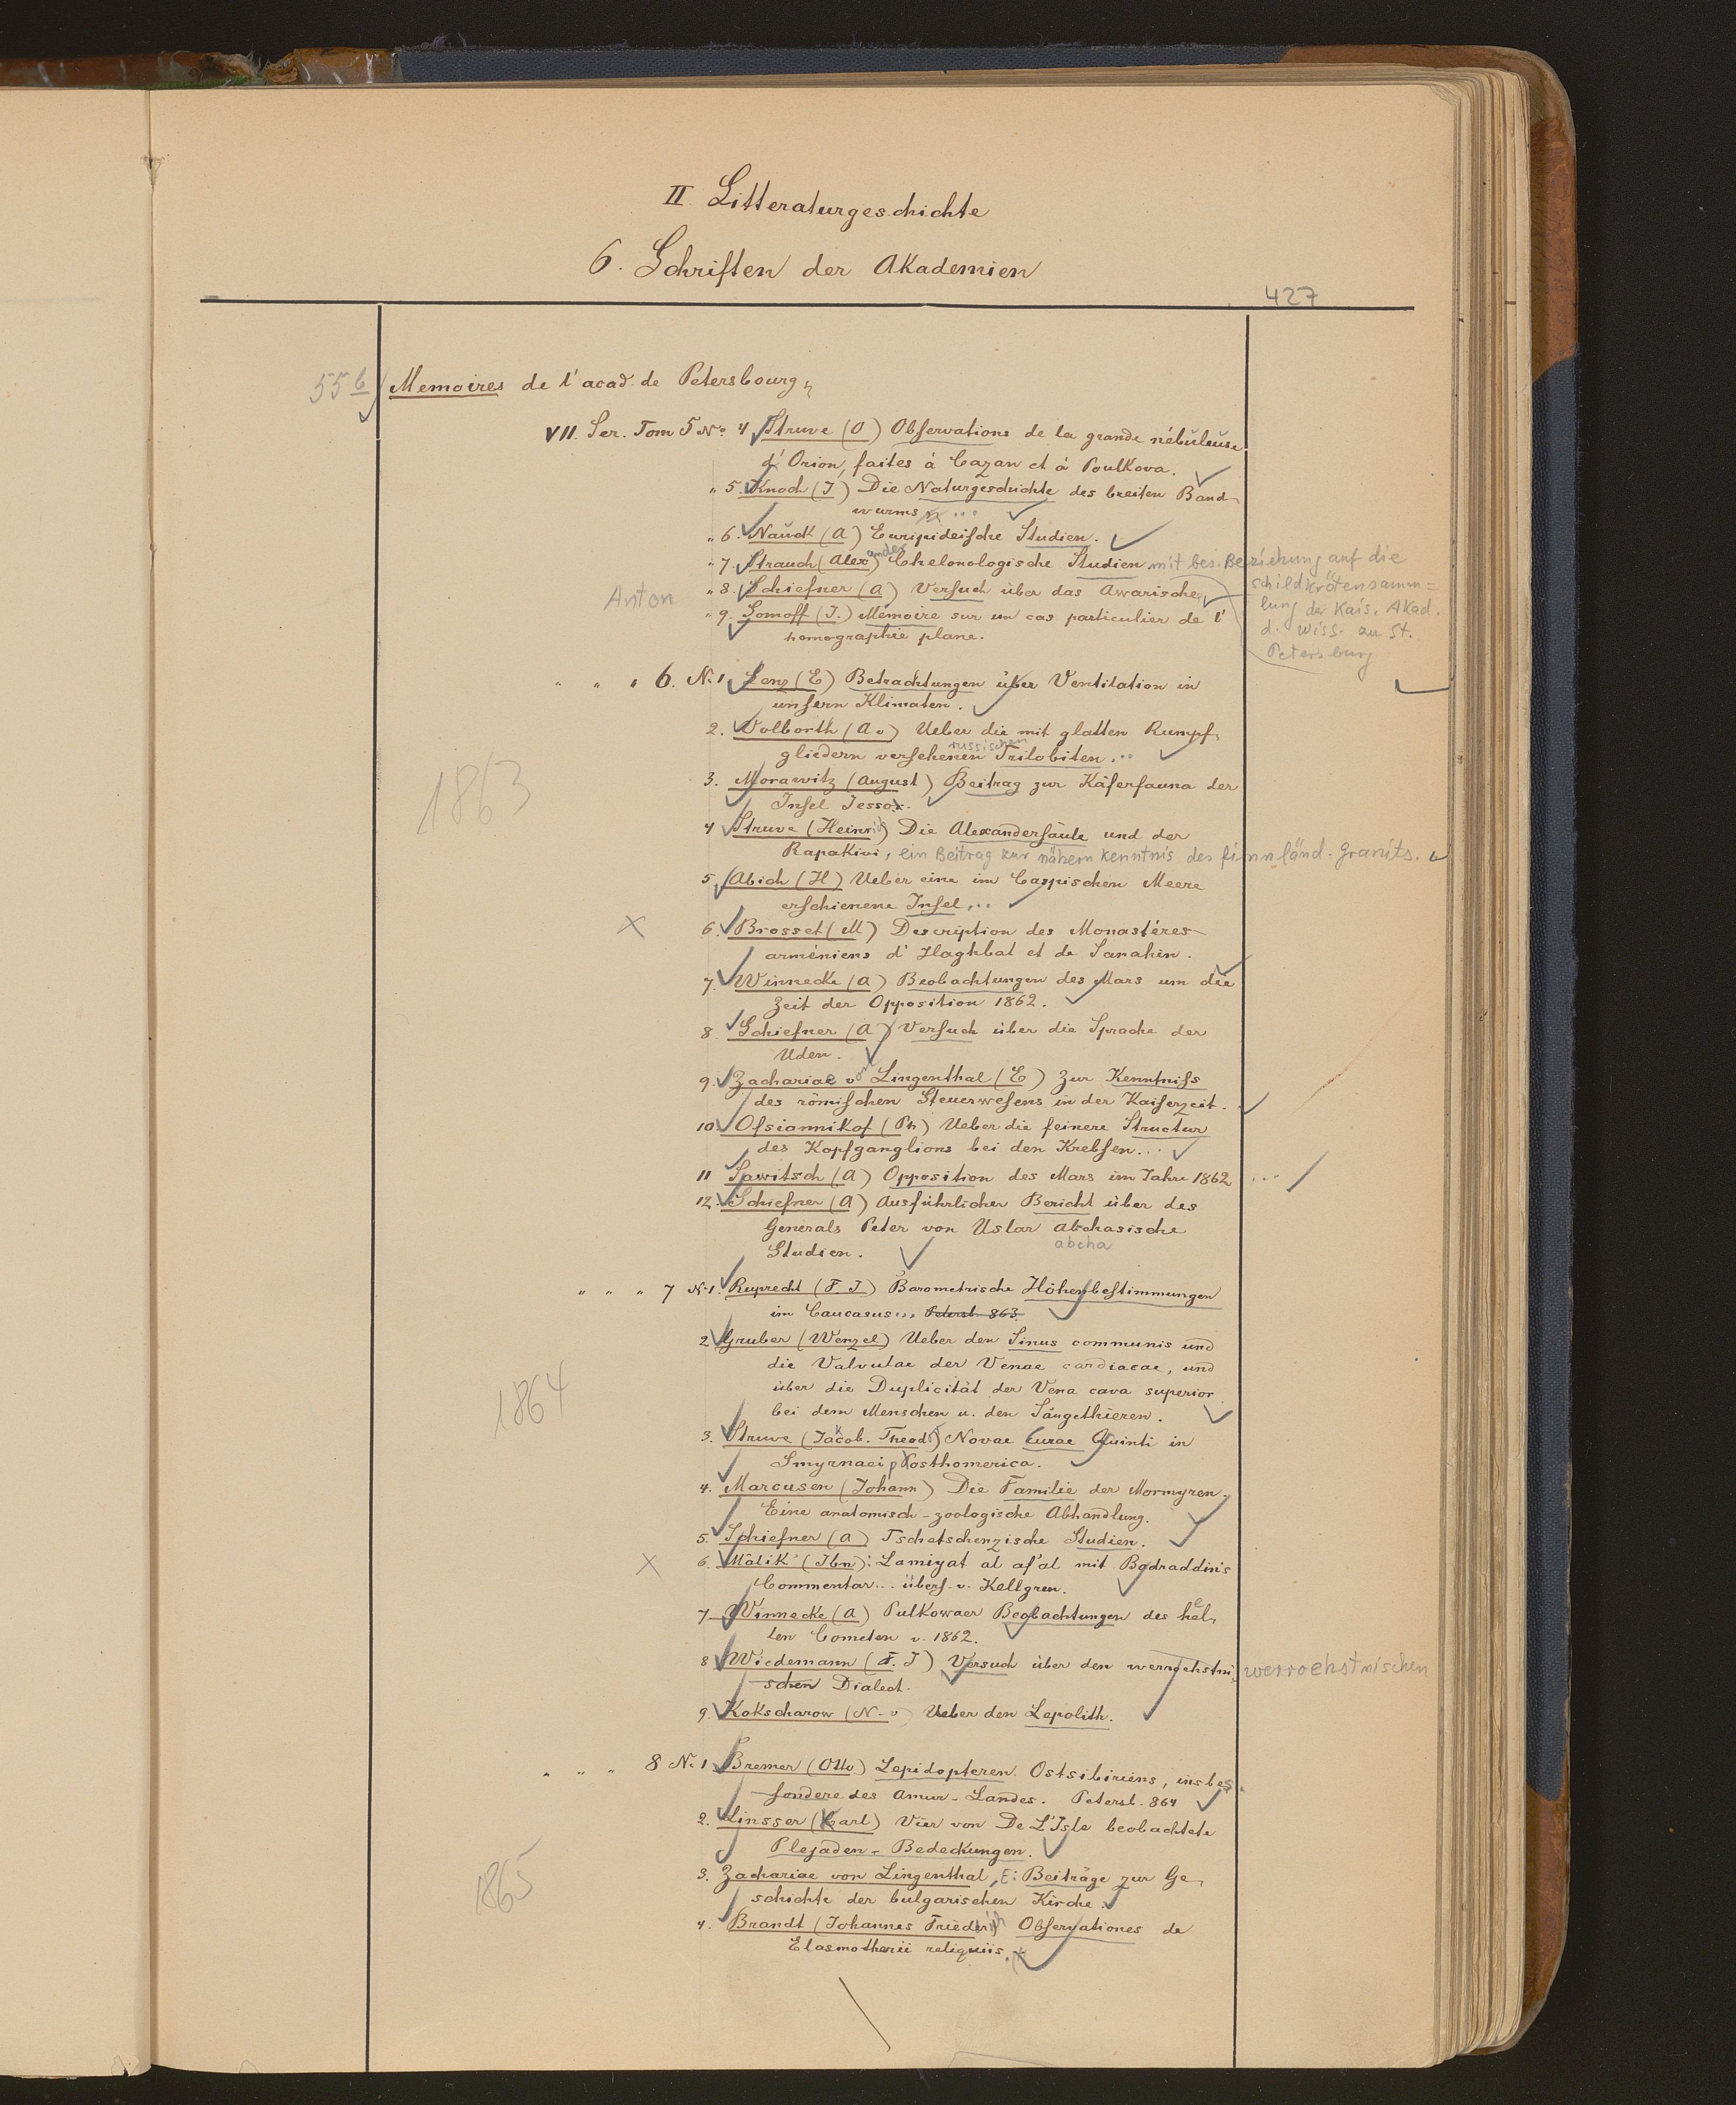 II. Litteraturgeschichte
6. Schriften der Akademien
427
55 b Memoires de l'acad. de Petersbourg
VII. Ser. Tom 5 No. 4 Struve (O) Observations de la grande nébuleuse
d'Orion, faites à Cazan et à Poulkova.
" 5. Knoch (J) Die Naturgeschichte des breiten Band-
wurms ...
" 6. Nauck (A) Euripideische Studien.
" 7. Strauch (Alexander) Chelonologische Studien mit bes. Beziehung auf die
schildkrötensamm=
lung der Kais. Akad.
d. Wiss. zu St.
Petersburg
Anton " 8. Schiefner (A) Versuch über das Awarische
" 9. Somoff (J.) Mémoire sur un cas particulier de l'
homographie plane.
" " " 6. No 1 Lenz (E) Betrachtungen über Ventilation in
unsern Klimaten.
2. Volborth (A v) Ueber die mit glatten Rumpf-
gliedern versehenen russischen Trilobiten...
1863
3. Morawitz (August) Beitrag zur Käferfauna der
Insel Jesso.
4 Struve (Heinrich) Die Alexandersäule und der
Rapakivi, ein Beitrag zur nähern Kenntnis des finnländ. Granits.
5. Abich (H) Ueber eine im Caspischen Meere
erschienene Insel,..
x 6. Brosset (M) Description des Monastéres
arméniens d'Haghbat et de Sanahin.
7. Winnecke (A) Beobachtungen des Mars um die
Zeit der Opposition 1862.
8. Schiefner (A) Versuch über die Sprache der
Uden.
9. Zachariae von Lingenthal (E) Zur Kenntniss
des römischen Steuerwesens in der Kaiserzeit.
10. Ofsiannikof (Ph) Ueber die feinere Structur
des Kopfganglions bei den Krebsen...
11 Sawitsch (A) Opposition des Mars im Jahre 1862 ...
12. Schiefner (A) Ausführlicher Bericht über des
Generals Peter von Uslar abchasische
abcha
Studien.
" " " 7 No 1. Ruprecht (F. J) Barometrische Höhenbestimmungen
im Caucasus... Petersb. 863.
2 Gruber (Wenzel) Ueber den Sinus communis und
die Valvulae der Venae cardiacae, und
über die Duplicität der Vena cava superior
bei dem Menschen u. den Säugethieren.
1864
3. Struve (Jacob. Theod.) Novae curae Quinti in
Smyrnaei posthomerica.
4. Marcusen (Johann) Die Familie der Mormyren.
Eine anatomisch-zoologische Abhandlung.
5. Schiefner (A) Tschetschenzische Studien.
x 6. Mâlik' (Ibn): Lamiyat al af'al mit Badraddin's
Commentar... übers. v. Kellgren.
7. Winnecke (A) Pulkowaer Beobachtungen des hel-
len Cometen v. 1862.
8 Wiedemann (F. J) Versuch über den werroehstni- werroehstnischen
schen Dialect.
9. Kokscharow (N. v) Ueber den Lepolith.
" " " 8 No 1 Bremer (Otto) Lepidopteren Ostsibiriens, insbes-
sondere des Amur-Landes. Petersb. 864
2. Linsser (Carl) Vier von De L'Isle beobachtete
Plejaden-Bedeckungen.
1865
3. Zachariae von Lingenthal, E: Beiträge zur Ge-
schichte der bulgarischen Kirche.
4. Brandt (Johannes Friedrich) Observationes de
Elasmotherii reliquiis.